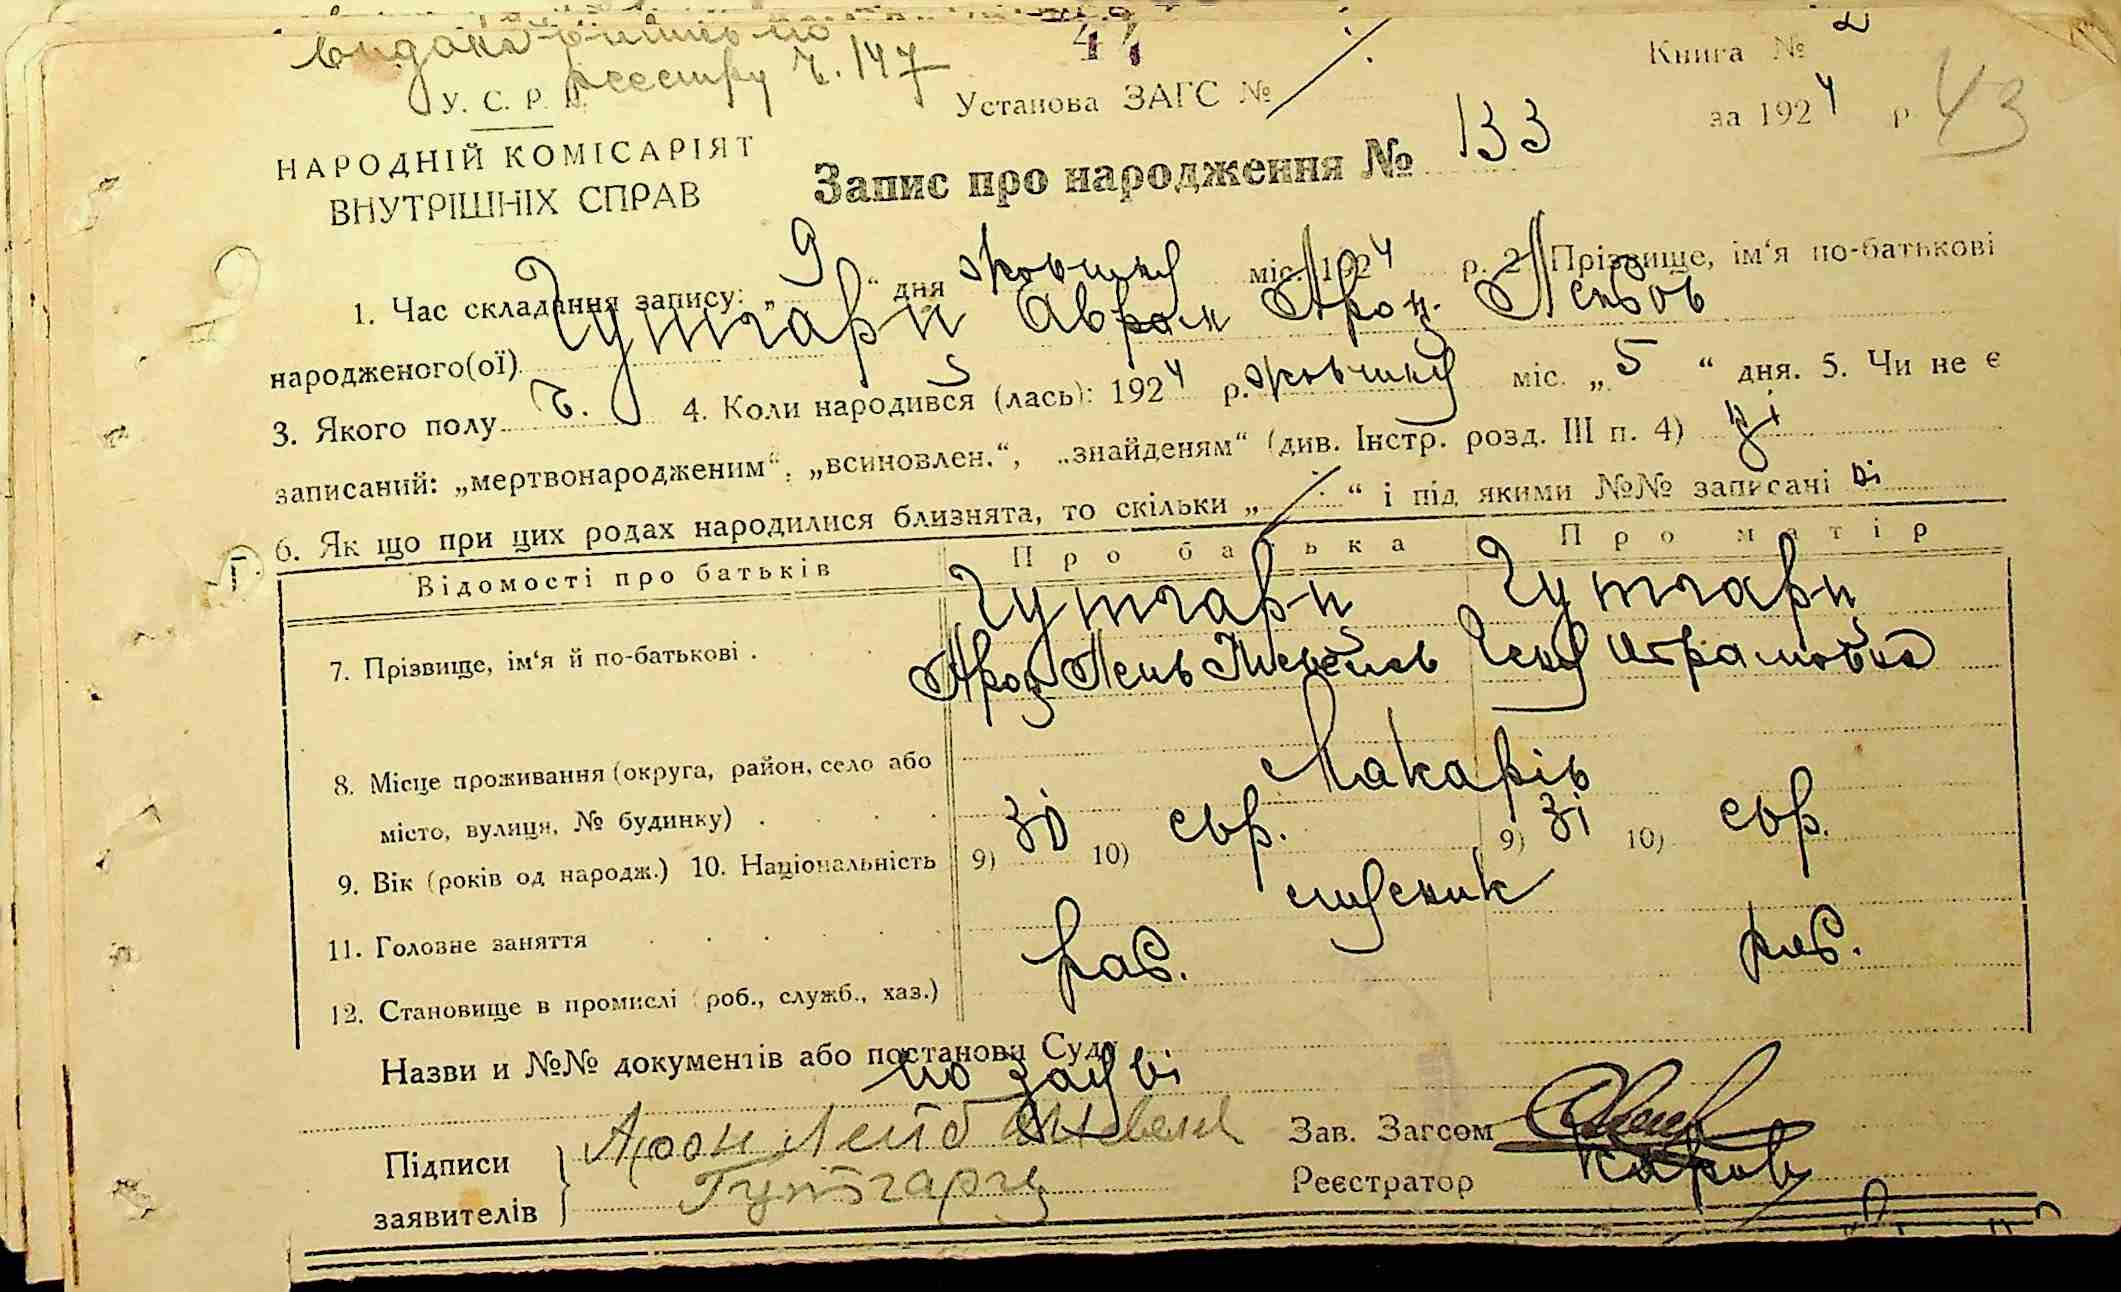 реєстру ч. 147
47
Книга № 2
У. С. Р. Р.
Установа ЗАГС №
за 1924 р. 43
НАРОДНІЙ КОМІСАРІЯТ
ВНУТРІШНІХ СПРАВ
Запис про народження № 133
1. Час складання запису: „ 9 “ дня жовтня міс. 1924 р. 2. Прізвище, ім‘я по-батькові
народженого(ої) Гутгарц Аврам Арон. Лейбов
3. Якого полу ч. 4. Коли народився (лась): 1924 р. жовтня міс. „ 5 “ дня. 5. Чи не є
записаний: „мертвонародженим“, „всиновлен.“, „знайденям“ (див. Інстр. розд. III п. 4) ні
6. Як що при цих родах народилися близнята, то скільки „ “ і під якими №№ записані ні
Відомості про батьків Про батька Про матір
Гутгарц Гутгарц
7. Прізвище, ім‘я й по-батькові .
Арон Лейб
8. Місце проживання (округа, район, село або Макарів
місто, вулиця, № будинку) .
9. Вік (років од народж.) 10. Національність 9) 30 10) євр. 9) 31 10) євр.
11. Головне заняття
12. Становище в промислі (роб., служб., хаз.) раб. раб.
Назви и №№ документів або постанови Суду
по заяві
Підписи Арон Лейб Зав. Загсом
заявителів Гутгарц Реєстратор